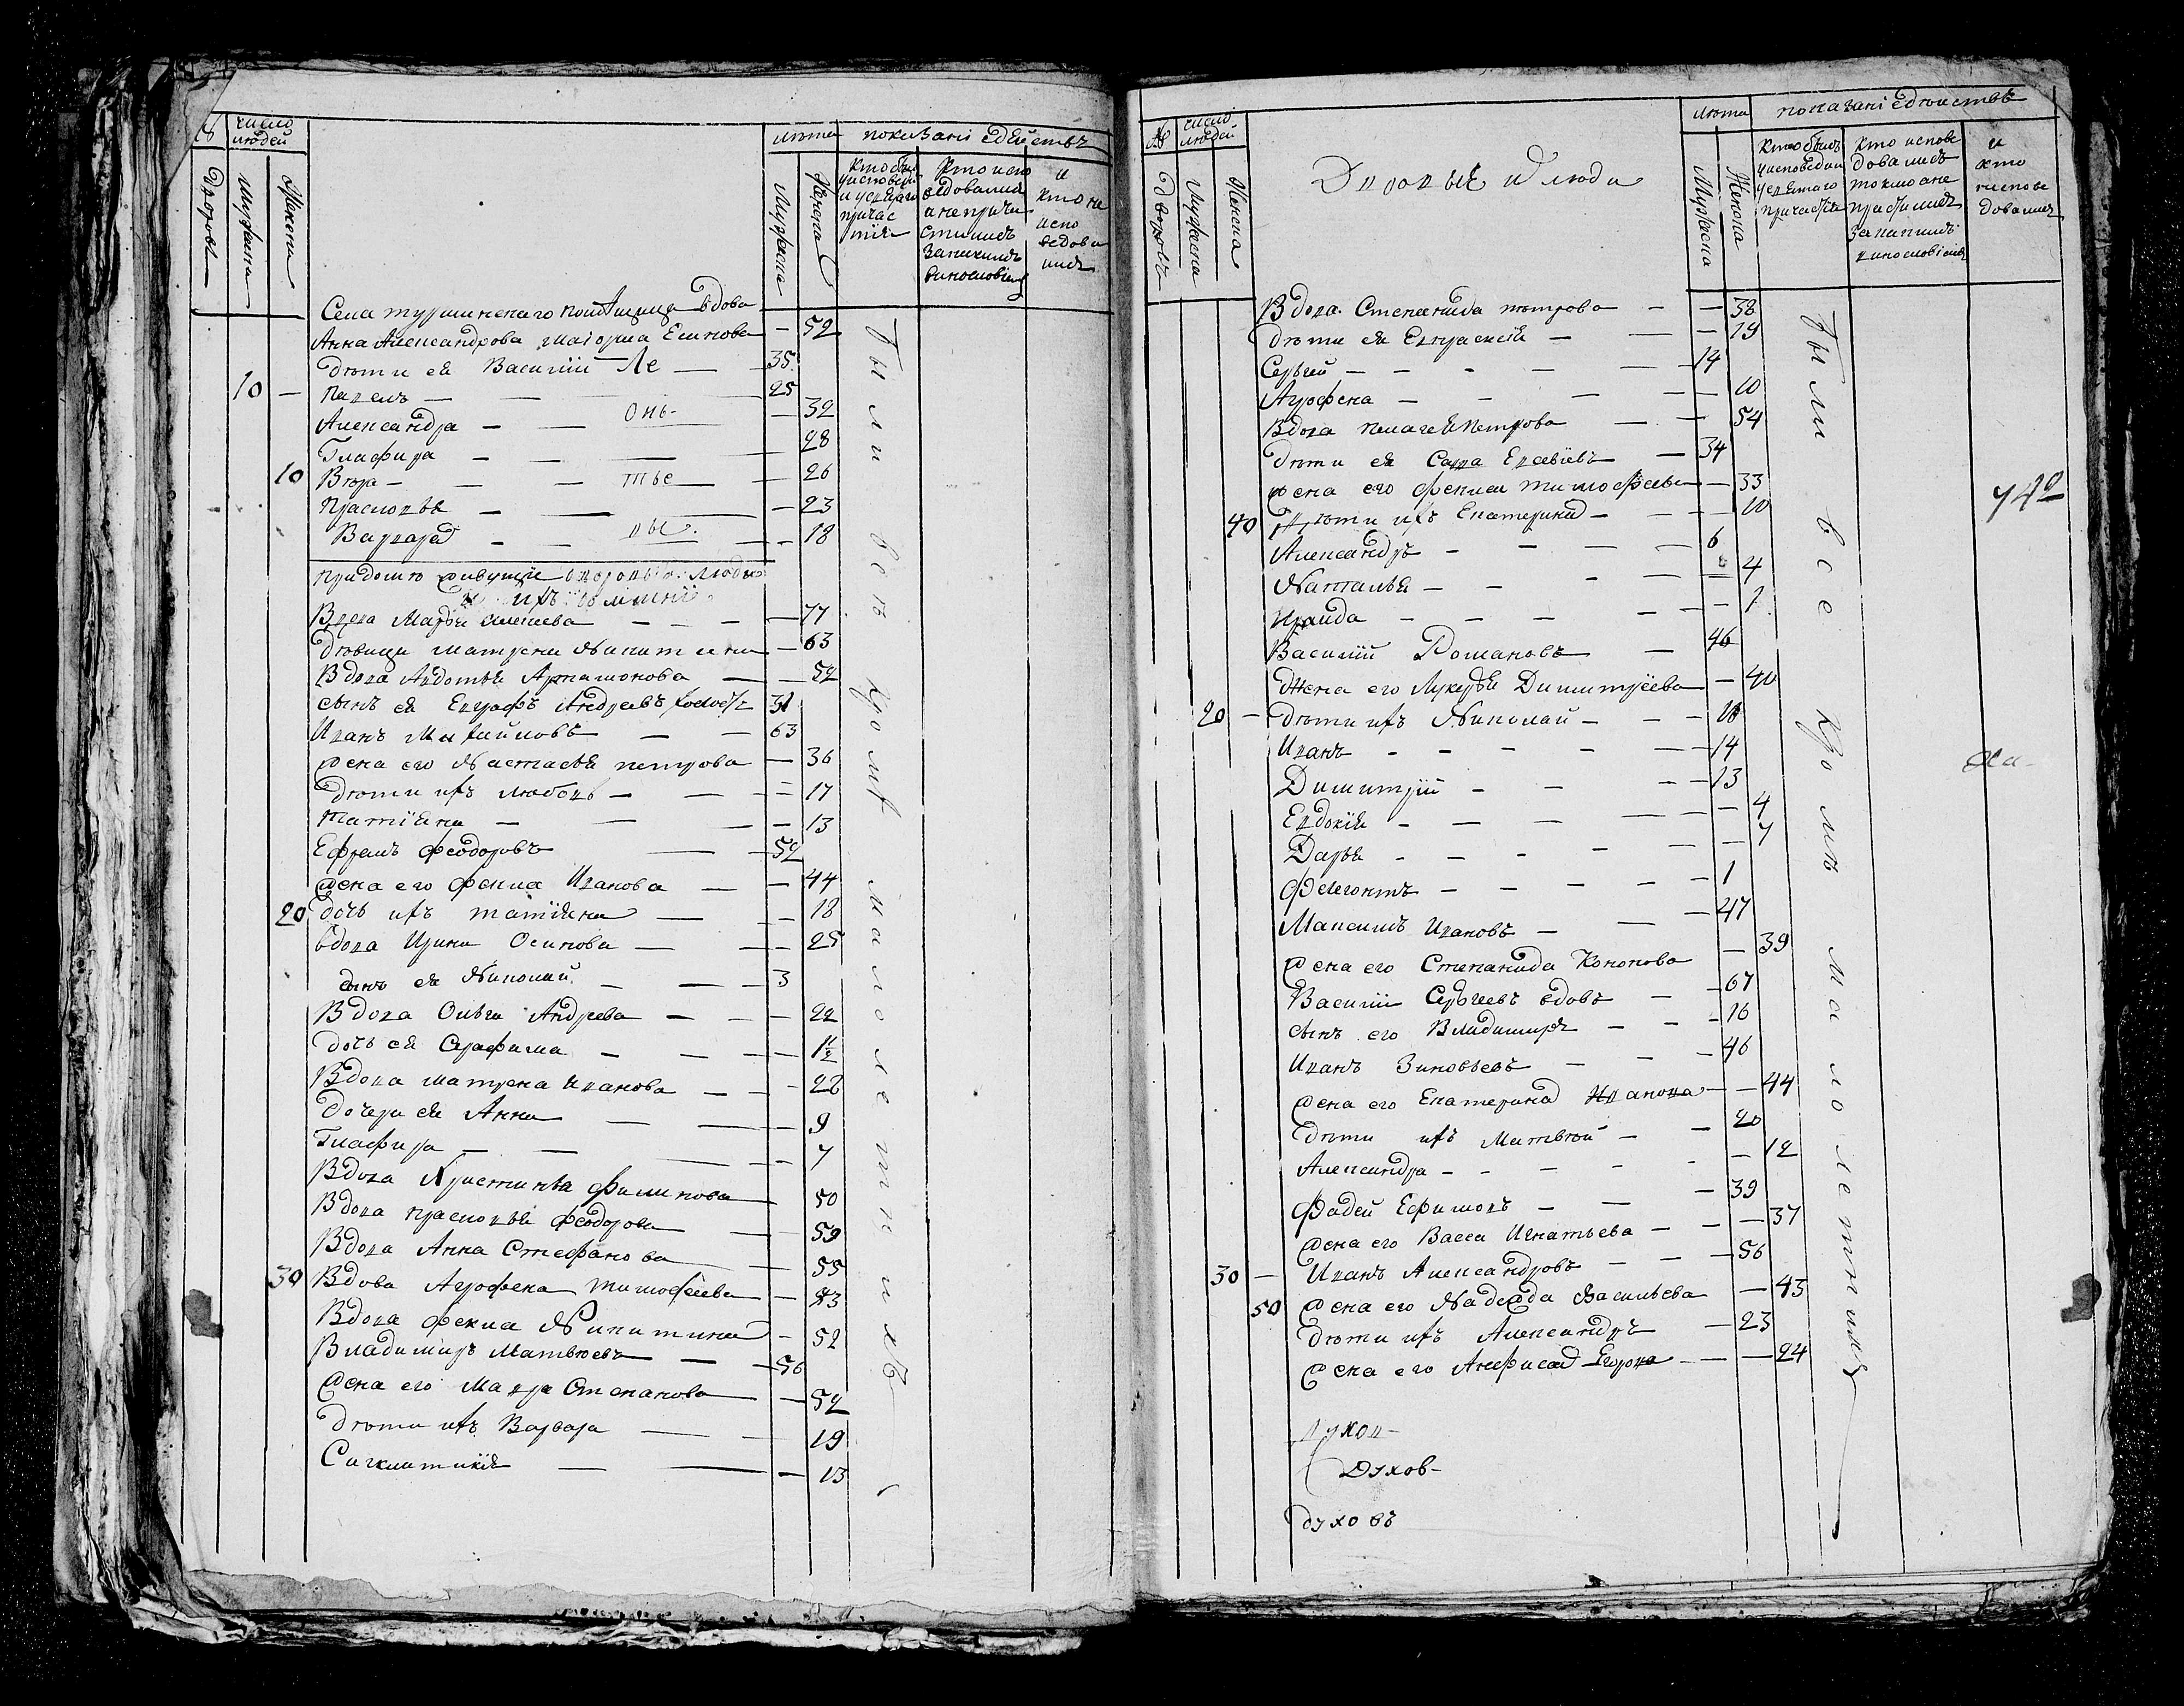 число людей
лѣта
показаніе дѣйствъ
Дворовъ
Мужеска
Женска
Мужеска
Женска
кто были у исповеди и у святаго причастія
Кто исповѣдовались а не причистились за какимъ винословіемъ
и кто не исповедовались
Села помѣщица вдова
Анна Александрова маіорша Есипова — 52
Дѣти ея Василій — 35
10 — Павелъ — — 25
Александра — — 32
Глафира — — 28
10 Вѣра — — — 26
Прасковья — — 23
Варвара — — 18
При домѣ живущіе дворовые люди
Вдова Марья — — 77
Дѣвица Матрена Никитина — 63
Вдова Авдотья Артамонова — 52
сынъ ея Евграфъ Андреевъ холостъ 31
Иванъ Михайловъ — — 63
жена его Настасья петрова — 36
Дѣти ихъ Любовь — — 17
Татіяна — — 13
Ефремъ Феодоровъ — 52
жена его Фекла Иванова — — 44
20 Дочь ихъ татіяна — — 18
вдова Ирина Осипова — — 25
сынъ ея Николай — — 3
Вдова Ольга Андреева — — 22
дочь ея Серафима — — 1½
Вдова матрена Иванова — — 28
дочери ея Анна — — 9
Глафира — — 7
Вдова Христинья Филипова 50
Вдова прасковья Феодорова — 59
Вдова Анна Стефанова — 55
30 Вдова Агрофена тимофеева — 43
Вдова Фекла Никитина — 52
Владимиръ Матвѣевъ — — 56
жена его Мавра Степанова — 52
Дѣти ихъ Варвара — — 19
Сигклитикія — — 13
Были все Кромѣ малолетнихъ
число людей
Дворовыя люди
лѣта
показаніе дѣйствъ
Дворовъ
Мужеска
Женска
Мужеска
Женска
кто былъ у исповеди и у святаго причастія
кто исповедовались токмо а не причастились за какимъ винословіемъ
и кто не исповедовались
Вдова Степанида петрова — — 38
Дѣти ея Евпраксія — — 19
Сергей — — — — 14
Агрофена — — — — 10
Вдова пелагея петрова — — 54
Дѣти ея Савва Евсевіевъ — 34
жена его Фекла тимофеева — 33
40 Дѣти ихъ Екатерина — — 10
Александръ — — — 6
Наталья — — — — 4
Ираида — — — — 1
Василій Романовъ — 46
Жена его Лукерья Димитріева — 40
20 — Дѣти ихъ Николай — — 18
Иванъ — — — — 14
Димитрій — — — 13
Евдокія — — — — 4
Дарья — — — — 7
Фелегонтъ — — — — 1
Максимъ Ивановъ — — 47
жена его Степанида Кононова — 39
Василій Сергеевъ вдовъ — 67
сынъ его Владимиръ — — 16
Иванъ Зиновьевъ — — 46
жена его Екатерина Иванова — — 44
Дѣти ихъ Матвѣй — — 20
Александра — — — — 12
Фадей Ефимовъ — — 39
жена его Васса Игнатьева — — 37
30 — Иванъ Александровъ — — 56
50 жена его Надежда Васильева — 43
Дѣти ихъ Александръ — 23
жена его Анфиса Егорова — — 24
Духов-
духовъ
Были все Кромѣ малолетнихъ
742